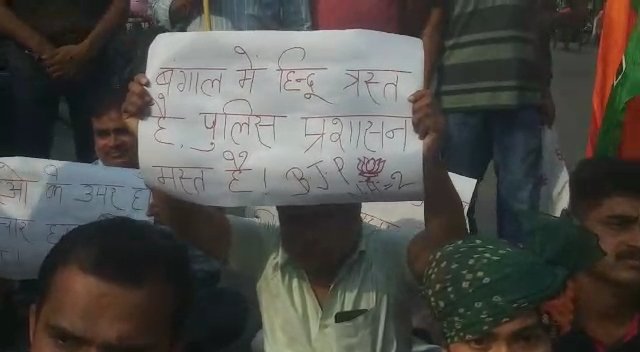 बंगाल में हिन्दू त्रस्त
है, पुलिस प्रशासन
मस्त है! B.J.P
के उपर हो